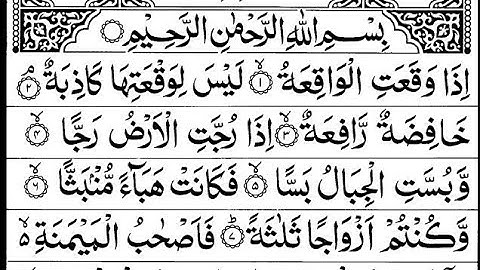 بِسْمِ اللّٰهِ الرَّحْمٰنِ الرَّحِيْمِ
اِذَا وَقَعَتِ الْوَاقِعَةُ ۙ‏﴿۱﴾ لَيْسَ لِوَقْعَتِهَا كَاذِبَةٌ ۘ‏﴿۲﴾
خَافِضَةٌ رَّافِعَةٌ ۙ‏﴿۳﴾ اِذَا رُجَّتِ الْاَرْضُ رَجًّا ۙ‏﴿۴﴾
وَّ بُسَّتِ الْجِبَالُ بَسًّا ۙ‏﴿۵﴾ فَكَانَتْ هَبَآءً مُّنْۢبَثًّا ۙ‏﴿۶﴾
وَّكُنْتُمْ اَزْوَاجًا ثَلٰثَةً ؕ‏﴿۷﴾ فَاَصْحٰبُ الْمَيْمَنَةِ ۙ۵